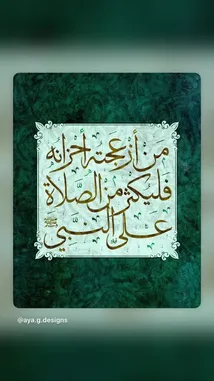 من أزعجته أحزانه
فليكثر من الصلاة
على النبي ﷺ
@aya.g.designs